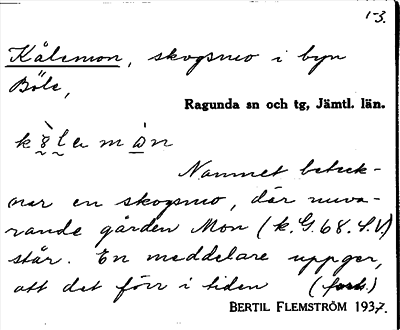 1-3.
Kålsmon, skogsmo i byn
Böle,
Ragunda sn och tg, Jämtl. län.
Namnet beteck-
nar en skogsmo, där nuva-
rande gården Mon (k. G. 68. S. V.)
står. En meddelare uppger,
att det förr i tiden (forts.)
BERTIL FLEMSTRÖM 1937.